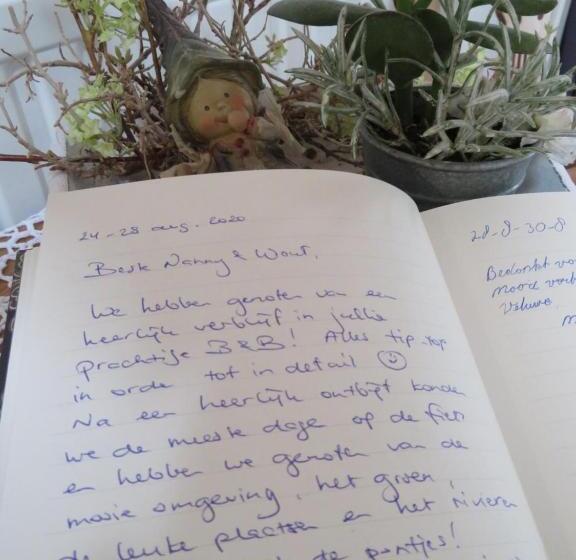 24-28 aug. 2020
Beste Nanny & Wout,
We hebben genoten van een
heerlijk verblijf in jullie
prachtige B&B! Alles tip-top
in orde tot in detail ☺
Na een heerlijk ontbijt konden
we de meeste dagen op de fiets
en hebben we genoten van de
mooie omgeving, het groen,
de leuke plaatsen en het rivieren
de pontjes!
28-8-30-8
Bedankt
Veluwe.